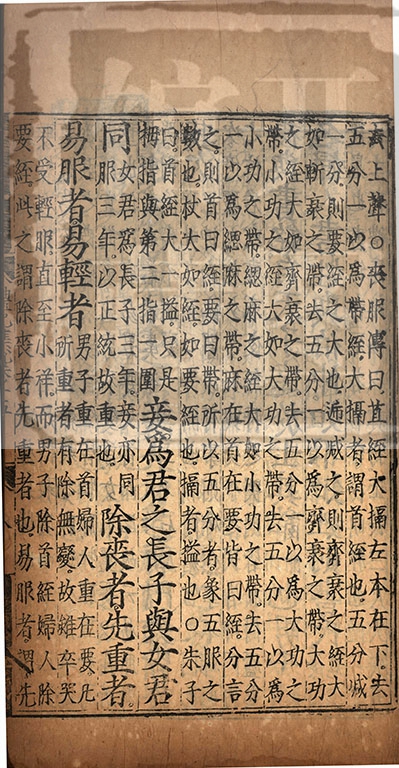 去上聲○喪服傳曰苴絰大搹左本在下。去
五分一以爲帶。絰大搹者。謂首絰也。五分減
一分。則要絰之大也。遞減之。則齊衰之絰大
如斬衰之帶。去五分一以爲齊衰之帶。大功
之絰大如齊衰之帶。去五分一以爲大功之
帶。小功之絰大如大功之帶。去五分一以爲
小功之帶。緦麻之絰大如小功之帶。去五分
一以爲緦麻之帶。麻在首在要皆曰絰。分言
之。則首曰絰。要曰帶。所以五分者。象五服之
數也。杖大如絰。如要絰也。搹者搤也。○朱子
曰。首絰大一搤。只是
拇指與第二指一圍
妾爲君之長子與女君
同
女君爲長子三年。妾亦同
服三年。以正統故重也。
除喪者。先重者。
易服者易輕者
男子重在首。婦人重在要。凡
所重者有除無變。故雖卒哭
不受輕服。直至小祥。而男子除首絰。婦人除
要絰。此之謂除喪者先重者也。易服者。謂先